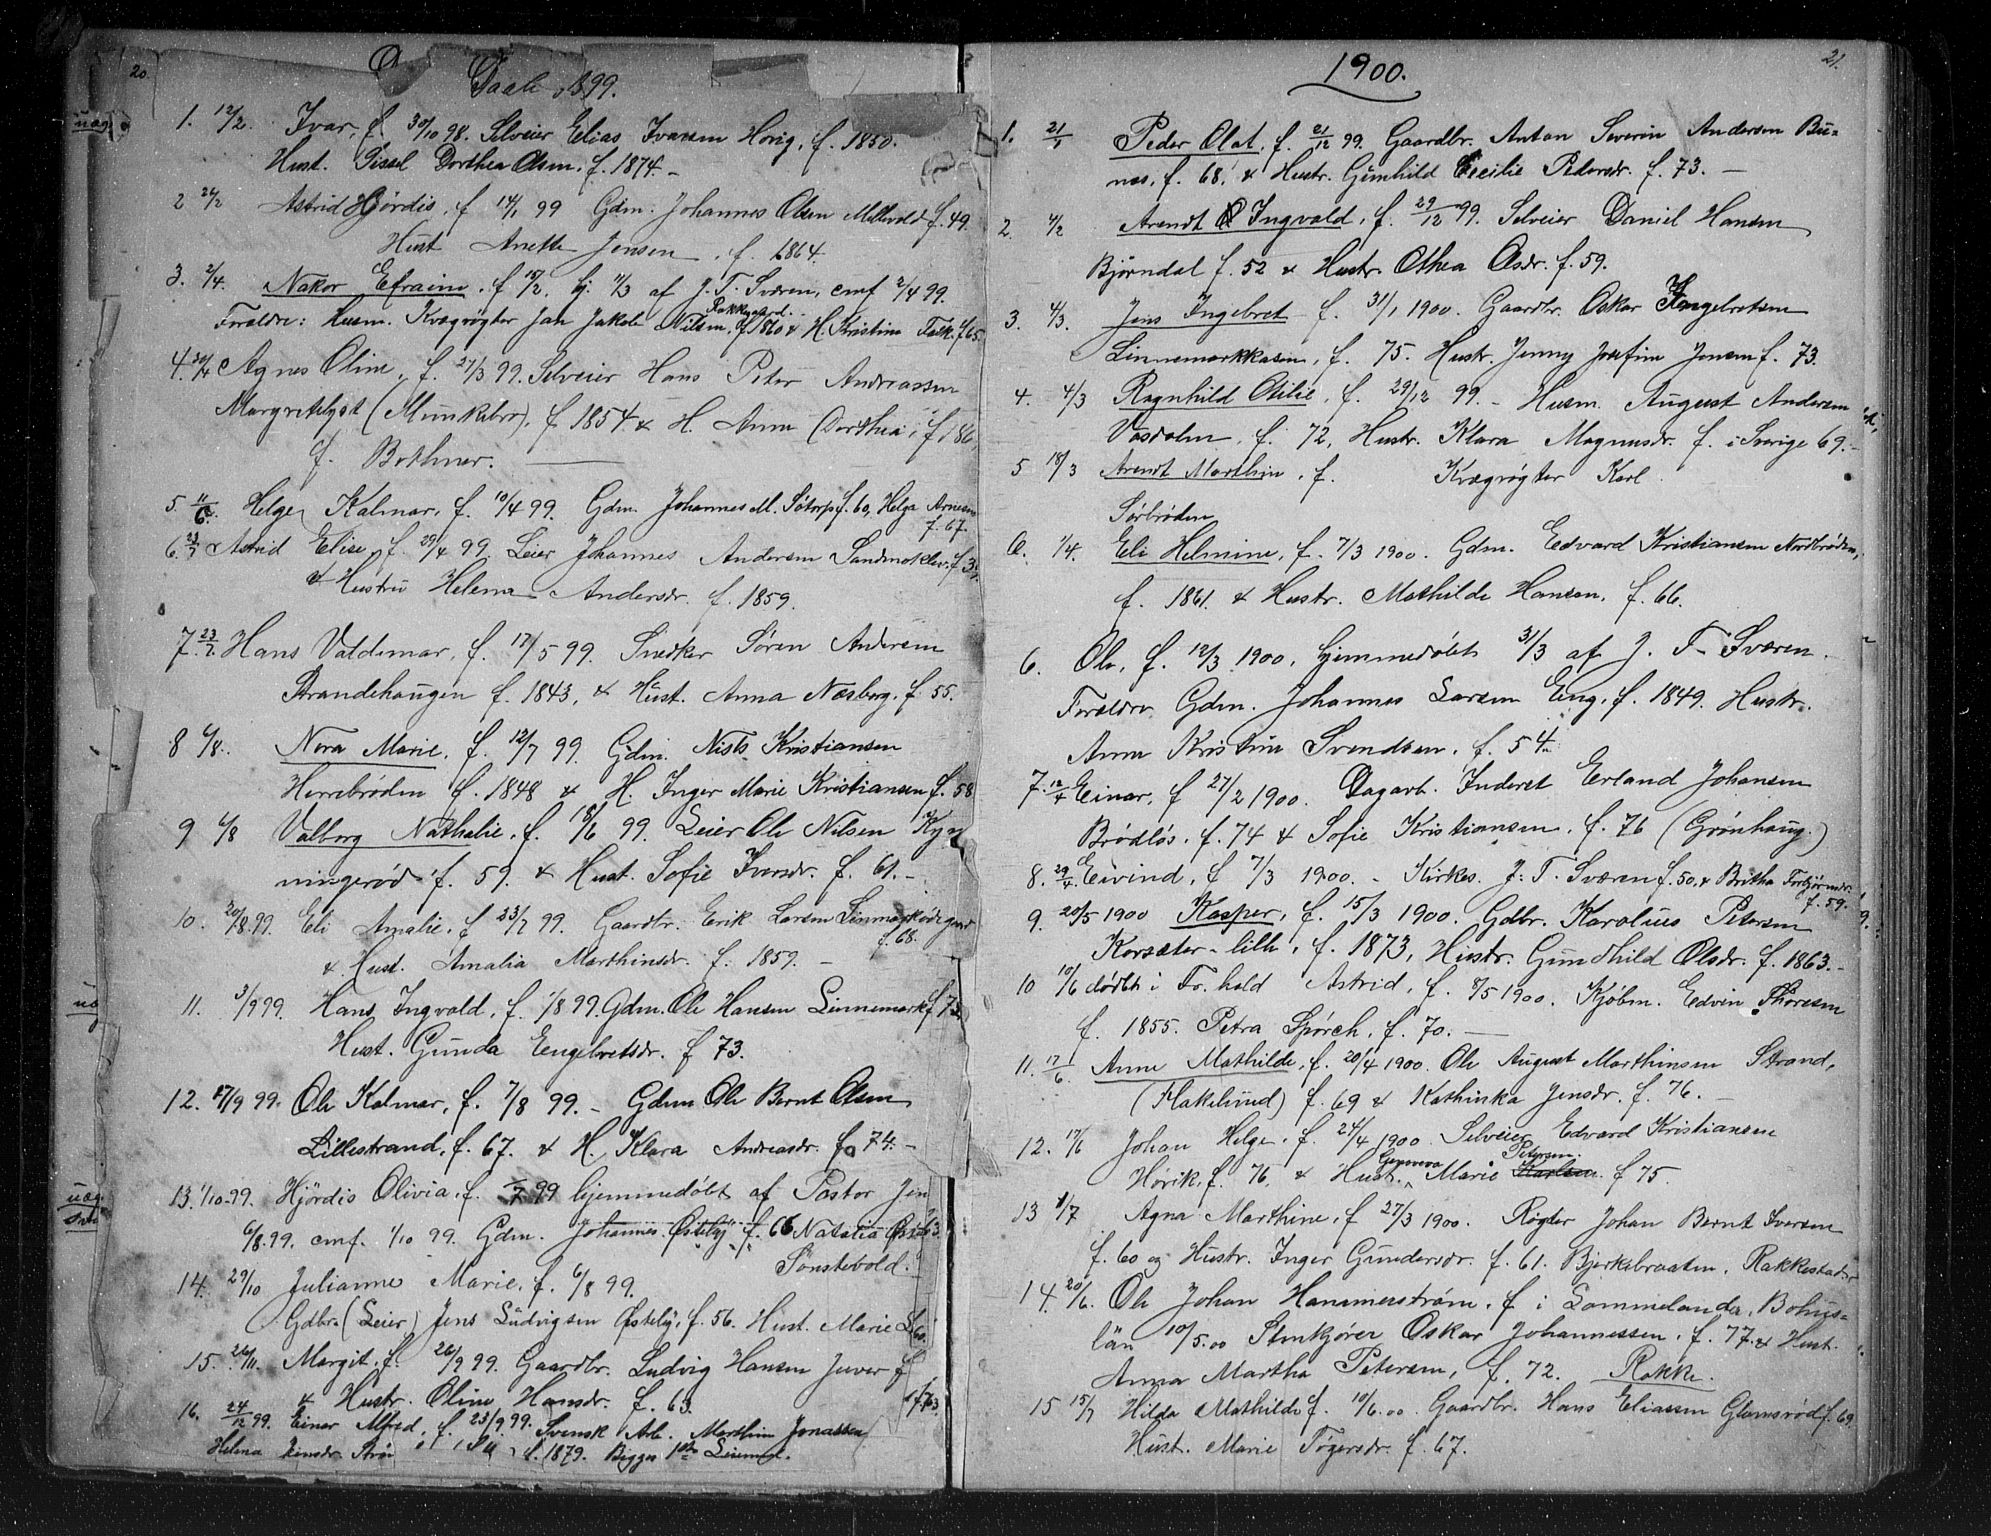 20.
Daab 1899.
1. 12/2. Ivar, f. 30/10 98. Selveier Elias Ivarsen Hovig, f. 1850.
Hust. Sissel Dorthea Olsen, f. 1874. -
2 26/2 Astrid Hjördis, f 14/1 99 Gdm. Johannes Olsen f. 49.
Hust Anette Jensen, f. 1864.
3. 2/4. Nakor Efraim, f 15/2. hj. 11/3 af J. T. Sværen, cmf 2/4 99.
Rakkegaard.
Forældre: Husm. Kvægrøgter Jah Jakob Nilsen, f 1860 & H. Kristine Falk. f 65.
4. 30/4 Agnes Oline, f. 27/3 99. Selveier Hans Peter Andreassen
Margretelyst (Munkebro), f 1854 & H. Anna Dorthea, f 186
f. Bothner.
5. 11/6. Helge Kalmar, f. 10/4 99. Gdm. Johannes M. Sötorp f. 60, Helga Arnesen
f. 67.
6. 23/7 Astrid Elise, f. 29/4 99. Leier Johannes Andersen f 3
& Hustru Helena Andersdr. f. 1859.
7. 23/7. Hans Valdemar, f. 17/5 99. Snedker Sören Andersen
Strandehaugen f. 1843, & Hust. Anna Næsberg, f. 55.
8 6/8. Nora Marie. f. 12/7 99. Gdm. Nils Kristiansen
Herrebröden f. 1848 & H. Inger Marie Kristiansen f. 58
9 6/8 Valborg Nathalie. f. 18/6 99. Leier Ole Nilsen Kyn
ningeröd f. 59. & Hust. Sofie Iversdr. f. 61. -
10. 20/8 99. Eli Amalie, f 23/7 99. Gaardbr. Erik Larsen
f. 68.
& Hust. Amalia Marthinsdr. f. 1859. -
11. 3/9 99. Hans Ingvald, f. 1/8 99. Gdm. Ole Hansen Linnemark f 73.
Hust. Gunda Engebretsdr. f 73.
12. 17/9 99. Ole Kalmar, f. 7/8 99. - Gdm Ole Bernt Olsen
Lillestrand, f. 67. & H. Klara Andreasdr. f. 74. -
13. 1/10 99. Hjördis Olivia, f. 99 hjemmedöbt af Pastor
6/8. 99. cmf. 1/10 99. Gdm. Johannes Östeby f. 66 Natalia
Sönstebold.
14. 29/10 Julianne Marie, f. 6/8 99.
Gdbr. (Leier) Jens Ludvigsen Östeby, f. 56. Hust. Marie
15. 26/11. Margit, f. 26/9 99. Gaardbr. Ludvig Hansen Juver f
& Hustr. Oline Hansdr. f. 63.
16. 24/12 99. Einar Alfred, f. 23/9 99. Svensk Arb. Marthin Jonassen
Helena Jensdr. f. 1879. Begges 1ste Leiermaal.
21.
1900.
1. 21/1 Peder Olat, f. 21/12 99. Gaardbr. Anton Severin Andersen Bu-
nes, f. 68. & Hustr. Gunhild Cecilie Pedersdr. f. 73. -
2. 4/2 Arendt Ingvald, f. 29/12 99. Selveier Daniel Hansen
Bjørndal f. 52 & Hustr. Othea Olsdr. f. 59.
3. 4/3. Jens Ingebret f. 31/1 1900. Gaardbr. Oskar Ingebretsen
Linnemarkkasen, f. 75. Hustr. Jenny Josefine Jensen f. 73.
4. 4/3 Ragnhild Otilie, f. 29/12 99. - Husm. August Andersen
Vasdalen, f. 72, Hustr. Klara Magnusdr. f. i Sverige 69.-
5 18/3 Arendt Marthin, f. Kvægrøgter Karl
Sørbrøden
6. 1/4. Eli Helmine, f. 7/3 1900. Gdm. Edvard Kristiansen Nordbrøden,
f. 1861. & Hustr. Mathilde Hansen. f. 66.
6. Ole, f. 12/3 1900, hjemmedøbt 31/3 af J. T. Sværen.
Forældre Gdm. Johannes Larsen Eng, f. 1849. Hustr.
Anna Kristine Svendsen, f. 54.
7. 12/4 Einar, f 27/2 1900. Dagarb. Inderst Erland Johansen
Brödløs, f. 74 & Sofie Kristiansen, f. 76 (Grönhaug.)
8. 29/4. Eivind, f 7/3 1900. - Kirkes. J. T. Sværen f. 50, & Britha Torbjörnsdr.
f. 59.
9. 20/5 1900 Kasper, f. 15/3 1900. Gdbr. Karolius Petersen
Korsæter-lille, f. 1873, Hustr. Gundhild Olsdr. f. 1863.-
10 10/6 döbt i Fr. hald Astrid, f. 8/5 1900. Kjøbm. Edvin Thoresen
f. 1855. Petra Spörch, f. 70.
11. 17/6. Anne Mathilde, f. 20/4 1900. Ole August Marthinsen Strand,
(Flakelund) f. 69 & Kathinka Jensdr. f. 76. -
12. 17/6 Johan Helge. f. 24/4 1900. Selveier Edvard Kristiansen
Genoveva Petersen.
Hövik, f. 76. & Hust. Marie Karlsen. f 75.
13 1/7 Agna Marthine, f 27/3 1900. Røgter Johan Bernt Iversen
f. 60 og Hustr. Inger Gundersdr. f. 61. Bjerkebraaten, Rakkestad
14. 20/6. Ole Johan Hammerström, f i Sommelanda, Bohus-
län 10/5.00 Stenkjører Oskar Johannessen, f. 77. & Hust.
Anna Martha Petersen, f. 72. Rakke.
15 15/7 Hilda Mathilde f. 10/6.00. Gaardbr. Hans Eliassen Glomsröd f. 69.
Hust. Marie Tøgersdr. f. 67.